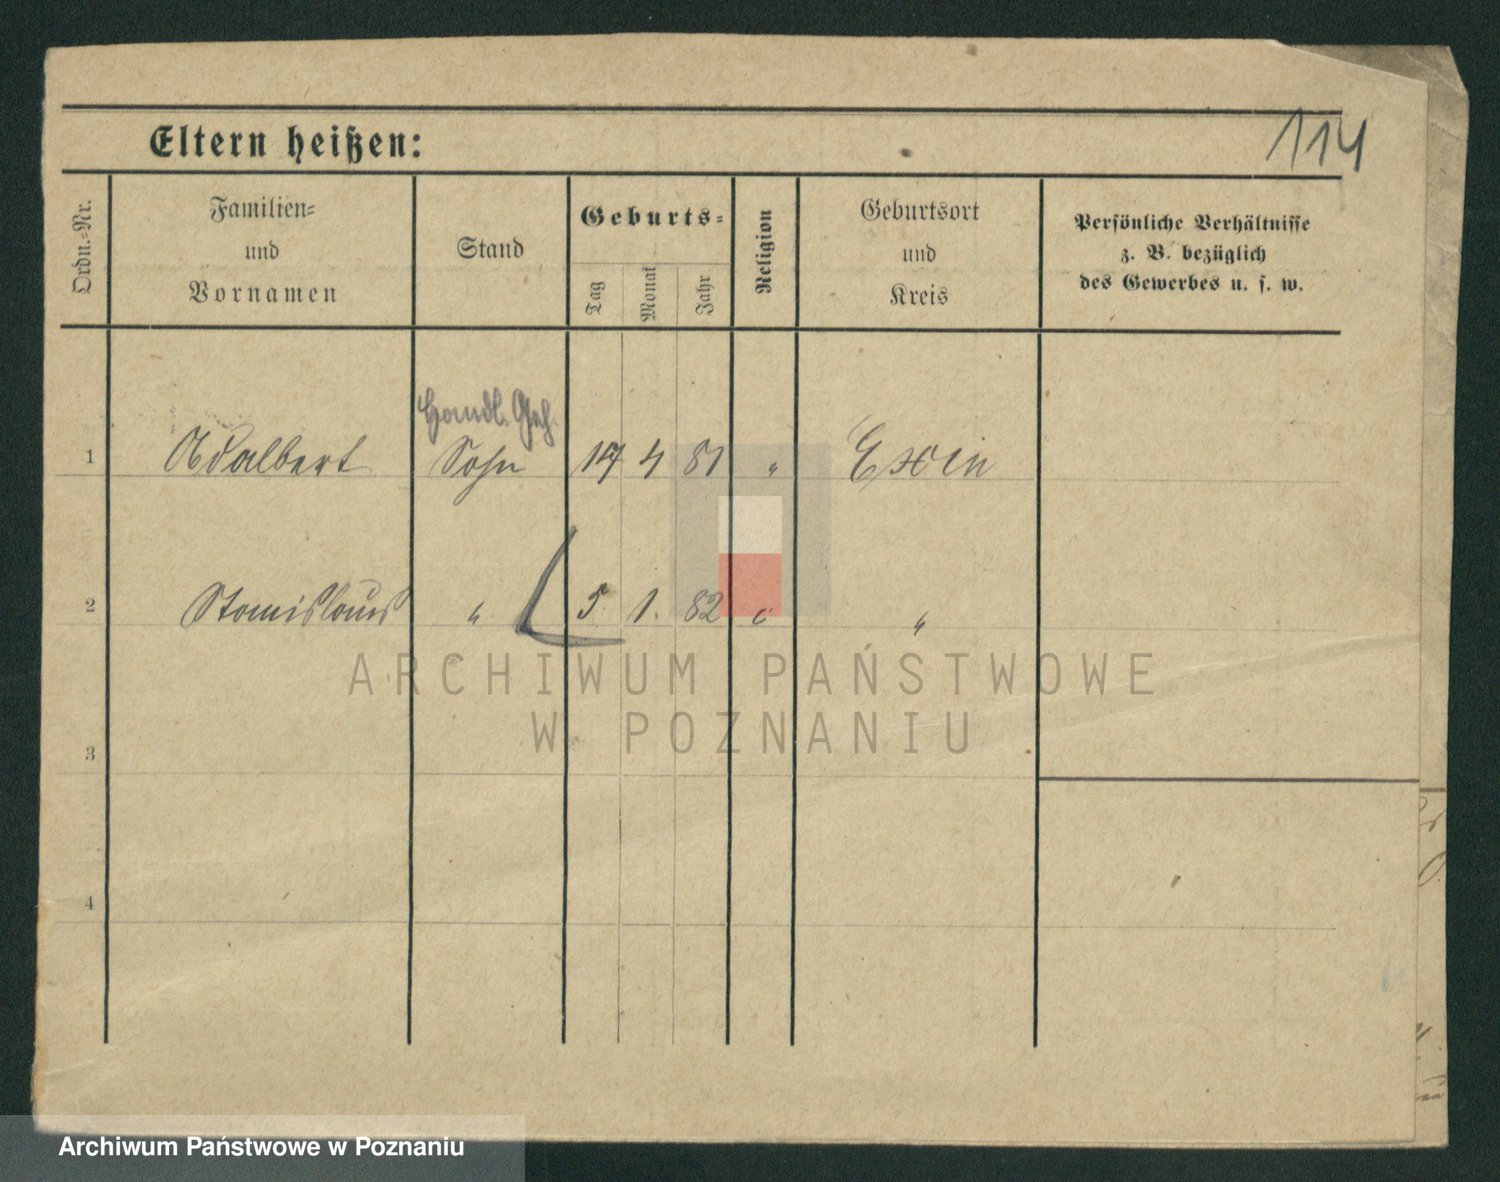 114
Eltern heißen:
Ordn.-Nr.
Familien-
und
Vornamen
Stand
Geburts-
Tag
Monat
Jahr
Religion
Geburtsort
und
Kreis
Persönliche Verhältnisse
z. B. bezüglich
des Gewerbes u. s. w.
Handl. Geh.
1 Adalbert Sohn 4 81 " Exin
2 Stanislaus " 5. 1. 82 "
3
4
ARCHIWUM PAŃSTWOWE
W POZNANIU
Archiwum Państwowe w Poznaniu